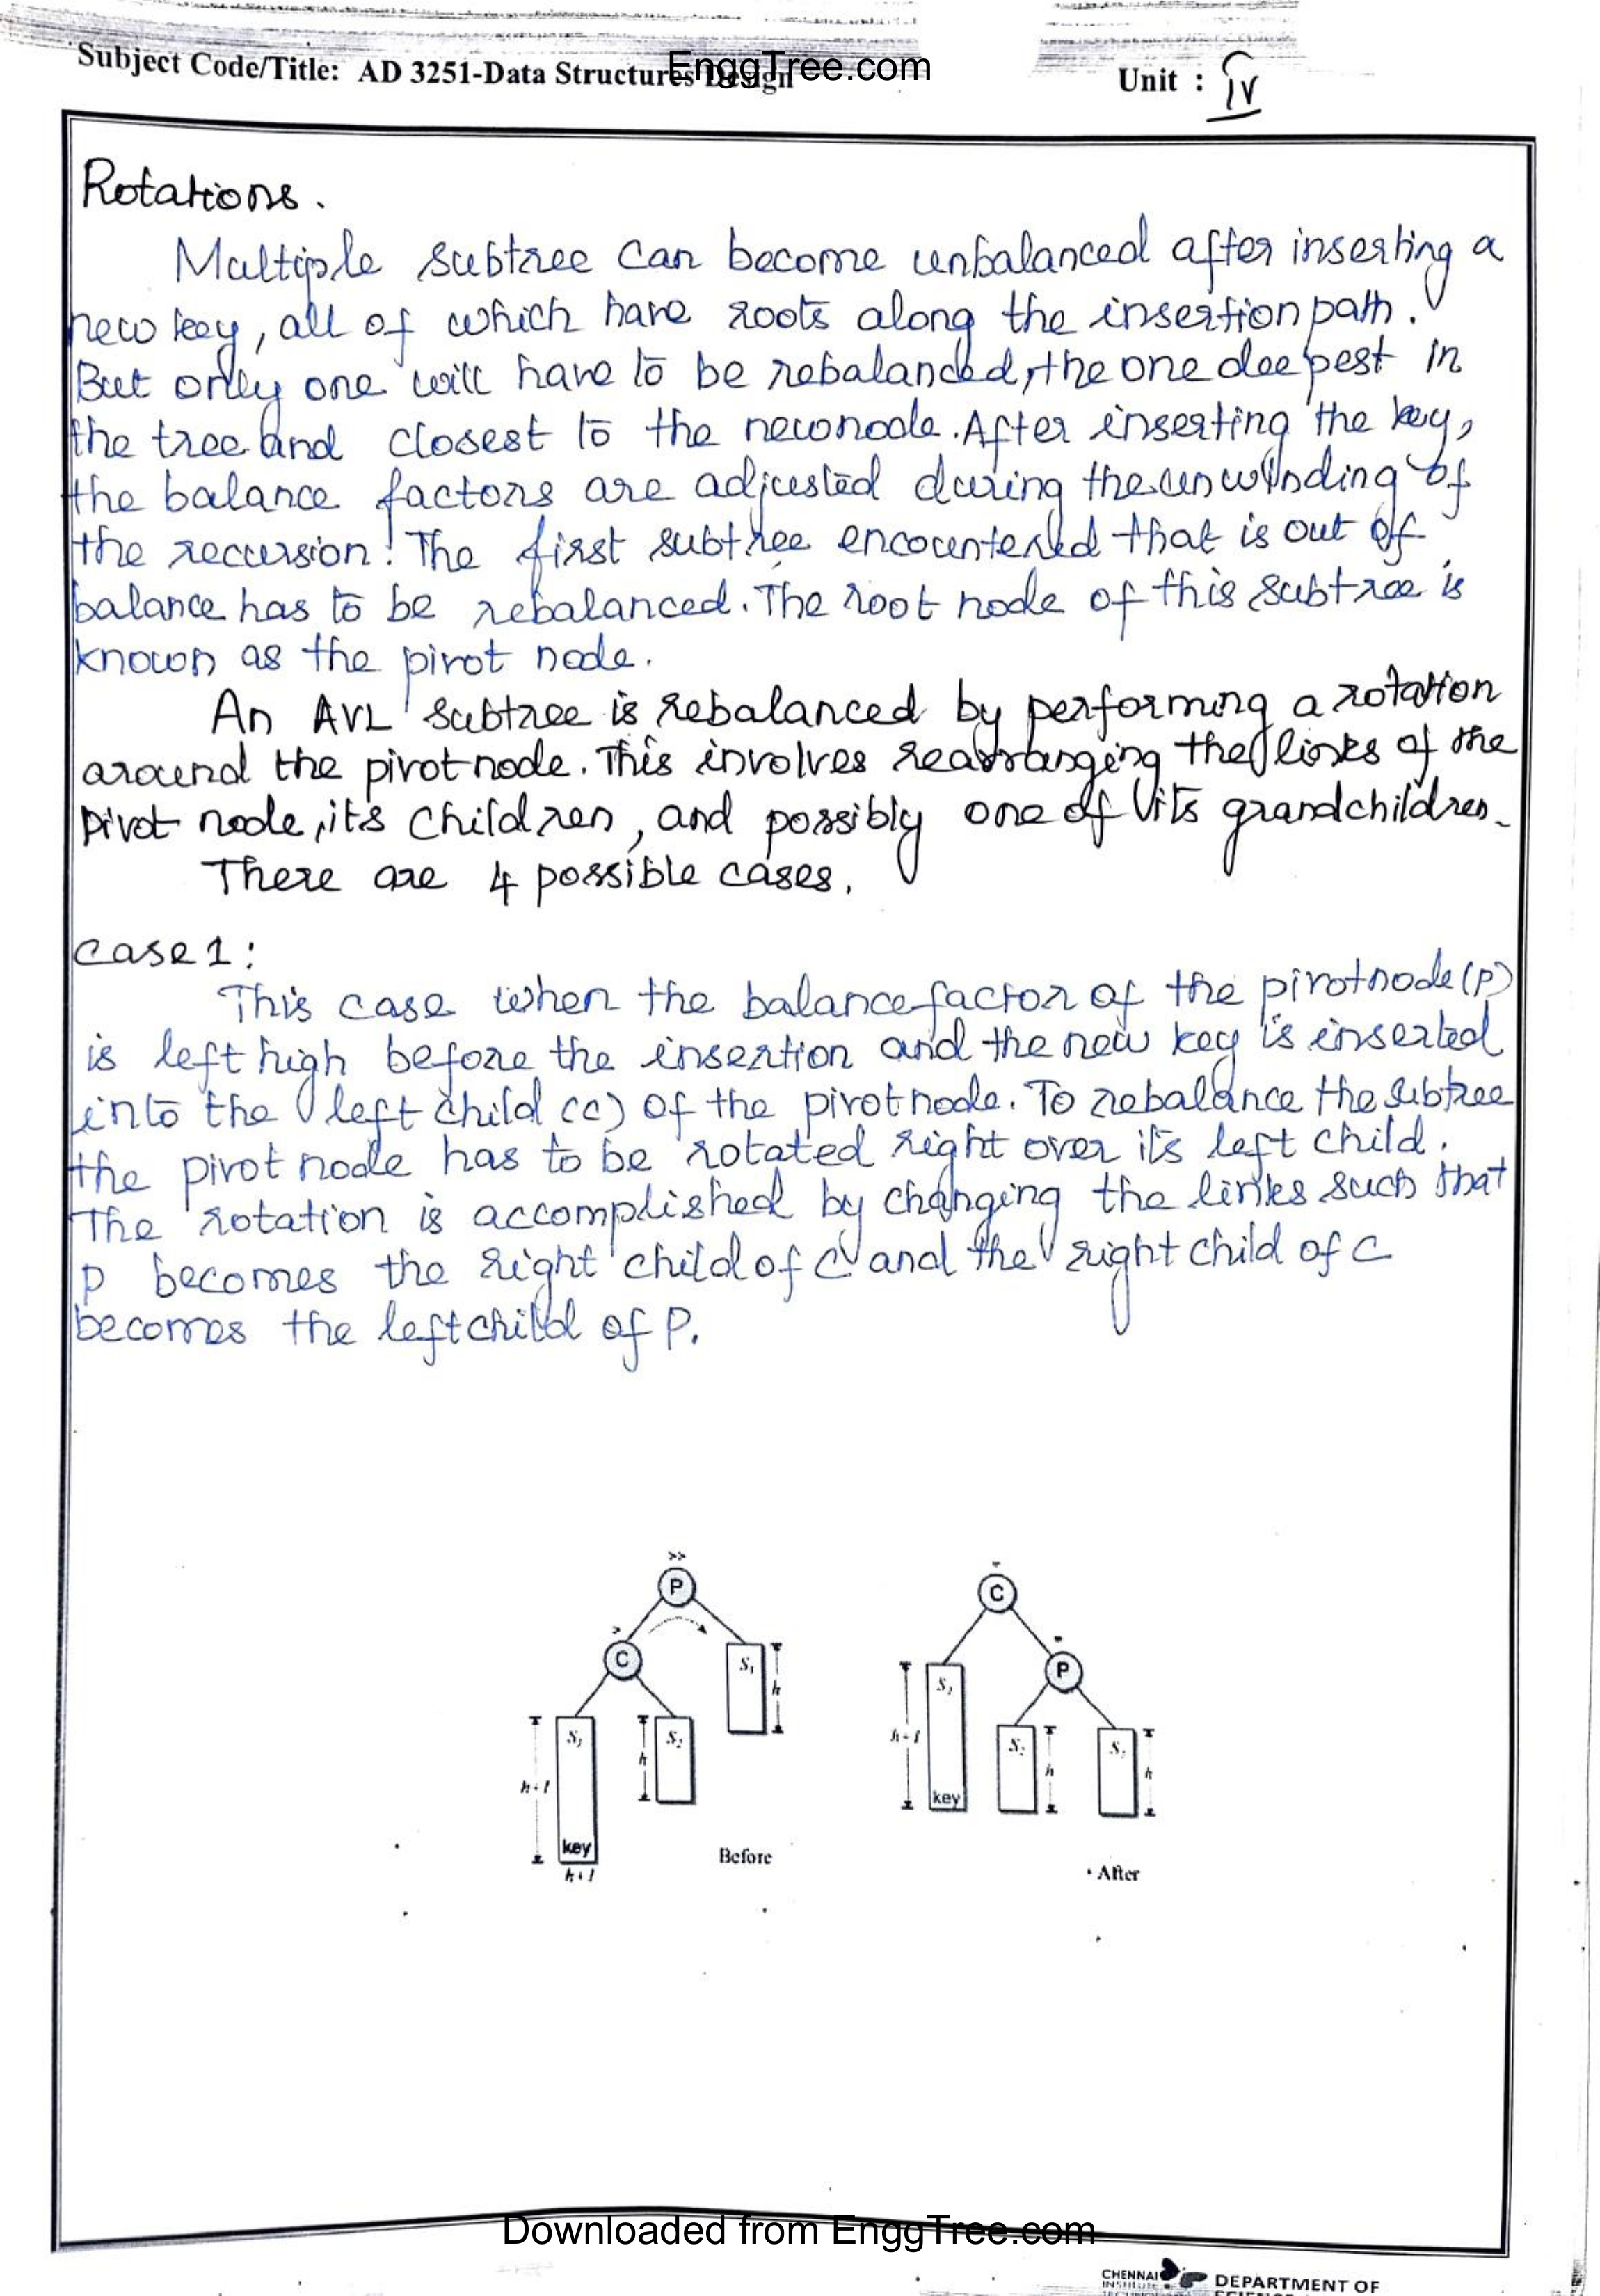 Subject Code/Title: AD 3251-Data Structures Design
EnggTree.com
Unit : IV
Rotations.
Multiple subtree can become unbalanced after inserting a
new key, all of which have roots along the insertion path.
But only one will have to be rebalanced, the one deepest in
the tree and closest to the new node. After inserting the key,
the balance factors are adjusted during the unwinding of
the recursion. The first subtree encountered that is out of
balance has to be rebalanced. The root node of this subtree is
known as the pivot node.
An AVL subtree is rebalanced by performing a rotation
around the pivot node. This involves rearranging the links of the
pivot node, its children, and possibly one of its grandchildren.
There are 4 possible cases.
case 1:
This case when the balance factor of the pivot node (P)
is left high before the insertion and the new key is inserted
into the left child (C) of the pivot node. To rebalance the subtree
the pivot node has to be rotated right over its left child.
The rotation is accomplished by changing the links such that
P becomes the right child of C and the right child of C
becomes the left child of P.
>>
P
>
C
S1
h
S3
S2
h
h+1
key
h+1
Before
C
P
S3
h+1
key
S2
h
S1
h
After
Downloaded from EnggTree.com
CHENNAI
INSTITUTE
DEPARTMENT OF